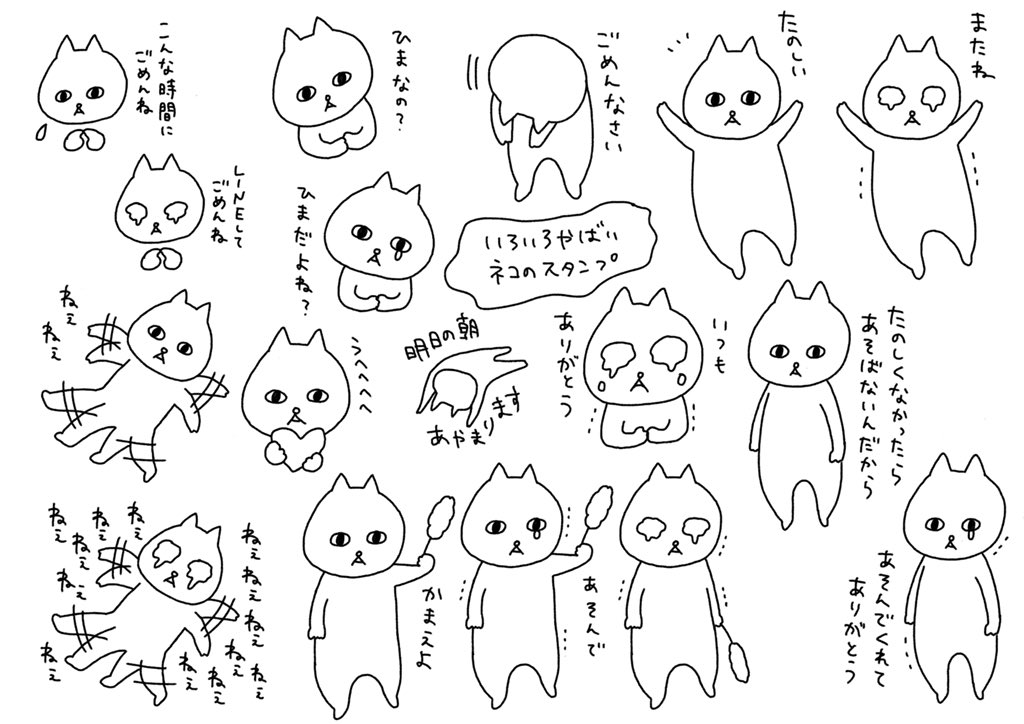 こんな時間に
ごめんね
LINEして
ごめんね
ひまなの?
ひまだよね?
ごめんなさい
たのしい
またね
いろいろやばい
ネコのスタンプ
ねぇ
ねぇ
うへへへへ
明日の朝
あやまります
いつも
ありがとう
たのしくなかったら
あそばないんだから
ねぇ
ねぇ
ねぇ
ねぇ
ねぇ
ねぇ
ねぇ
ねぇ
ねぇ
ねぇ
ねぇ
ねぇ
ねぇ
かまえよ
あそんで
あそんでくれて
ありがとう